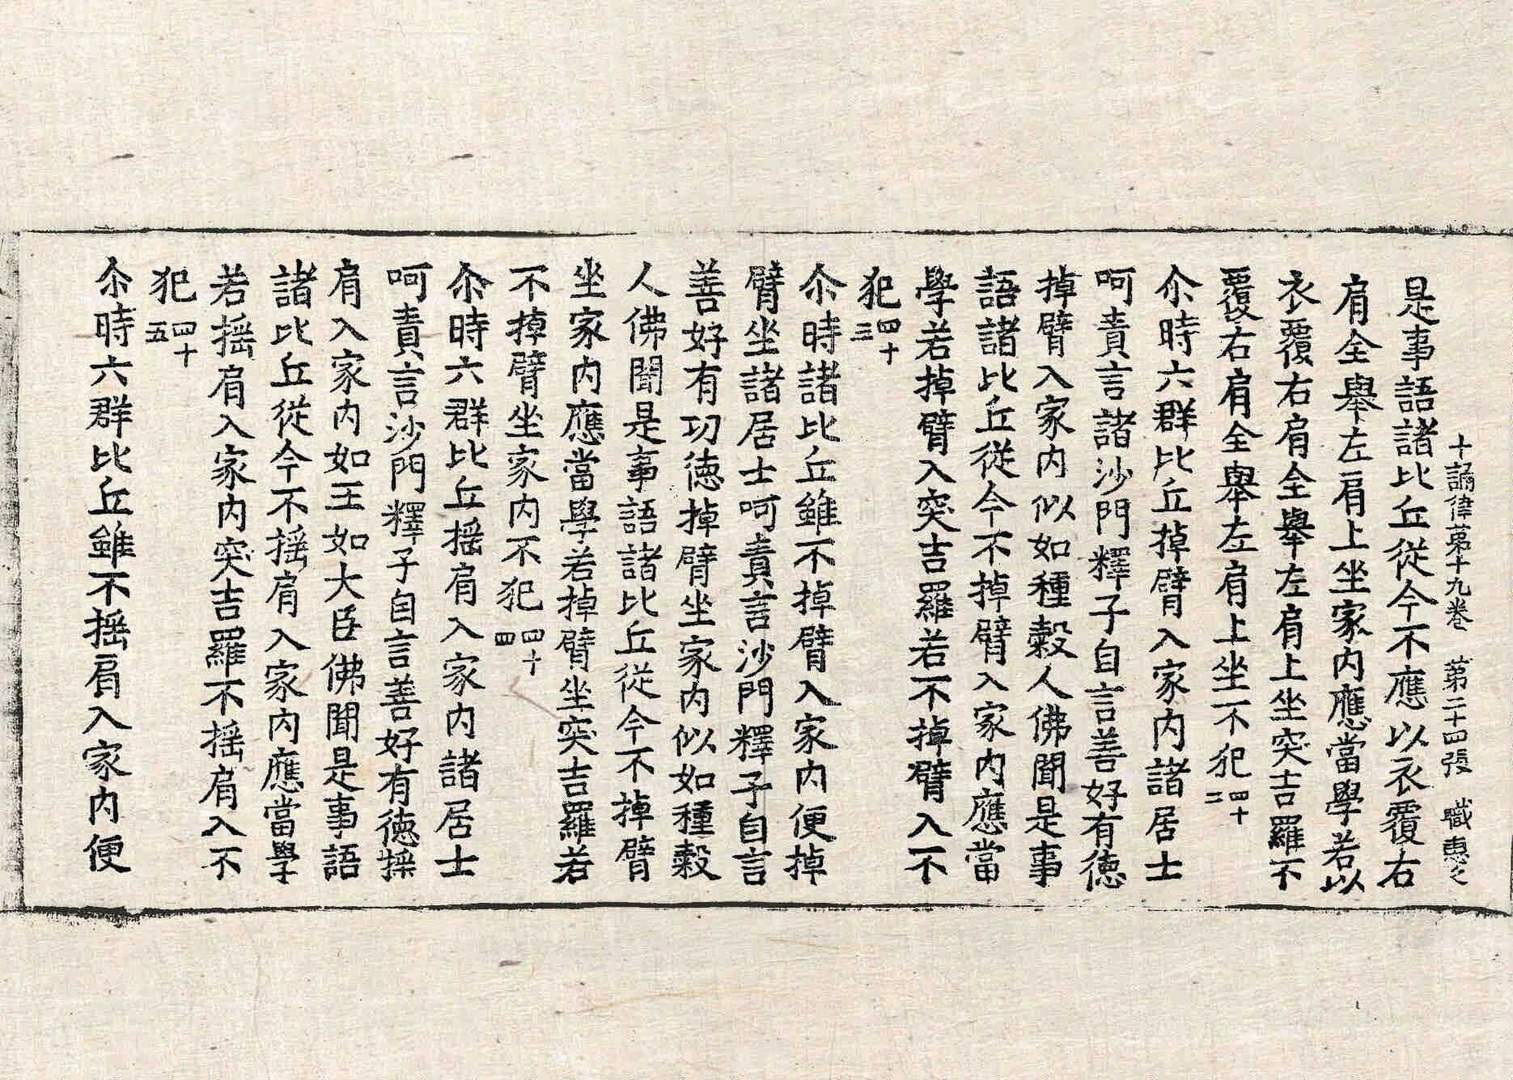 十誦律第十九卷　第二十四張　職　惠之
是事語諸比丘從今不應以衣覆右
肩全舉左肩上坐家內應當學若以
衣覆右肩全舉左肩上坐突吉羅不
覆右肩全舉左肩上坐不犯四十二
尒時六群比丘掉臂入家內諸居士
呵責言諸沙門釋子自言善好有德
掉臂入家內似如種穀人佛聞是事
語諸比丘從今不掉臂入家內應當
學若掉臂入突吉羅若不掉臂入不
犯四十三
尒時諸比丘雖不掉臂入家內便掉
臂坐諸居士呵責言沙門釋子自言
善好有功德掉臂坐家內似如種穀
人佛聞是事語諸比丘從今不掉臂
坐家內應當學若掉臂坐突吉羅若
不掉臂坐家內不犯四十四
尒時六群比丘搖肩入家內諸居士
呵責言沙門釋子自言善好有德搖
肩入家內如王如大臣佛聞是事語
諸比丘從今不搖肩入家內應當學
若搖肩入家內突吉羅不搖肩入不
犯四十五
尒時六群比丘雖不搖肩入家內便